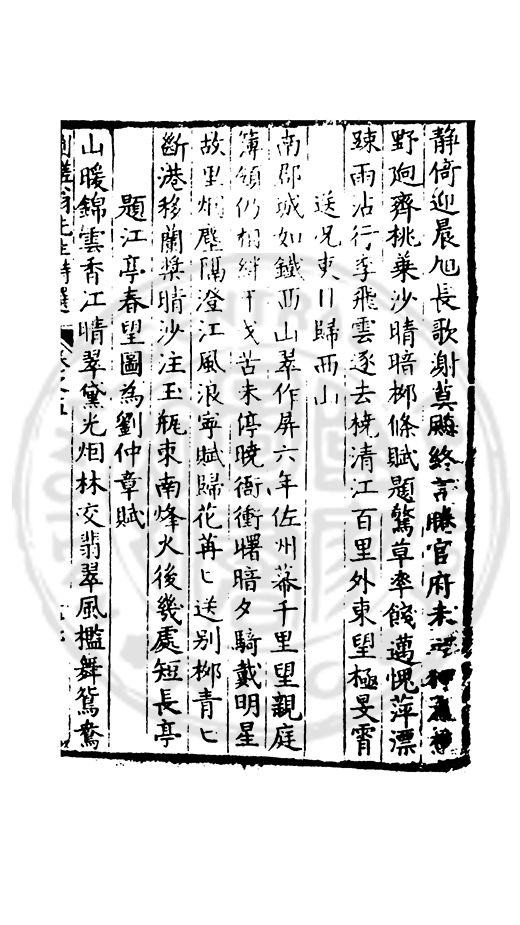 静倚迎晨旭長歌謝莫騁終言勝官府未
野逈齊桃葉沙晴暗桞條賦題驚草率餞邁愧萍漂
踈雨沾行李飛雲逐去橈清江百里外東望極旻霄
送兄吏目歸西山
南郡城如鐵西山翠作屏六年佐州幕千里望親庭
簿領仍相絆干戈苦未停曉衙衝曙暗夕騎戴明星
故里烟塵隔澄江風浪寧賦歸花苒匕送别桞青匕
斷港移蘭槳晴沙注玉瓶東南烽火後幾處短長亭
題江亭春望圖為劉仲章賦
山暖錦雲香江晴翠黛光烟林交翡翠風檻舞鴛鴦
先生詩選 卷之五